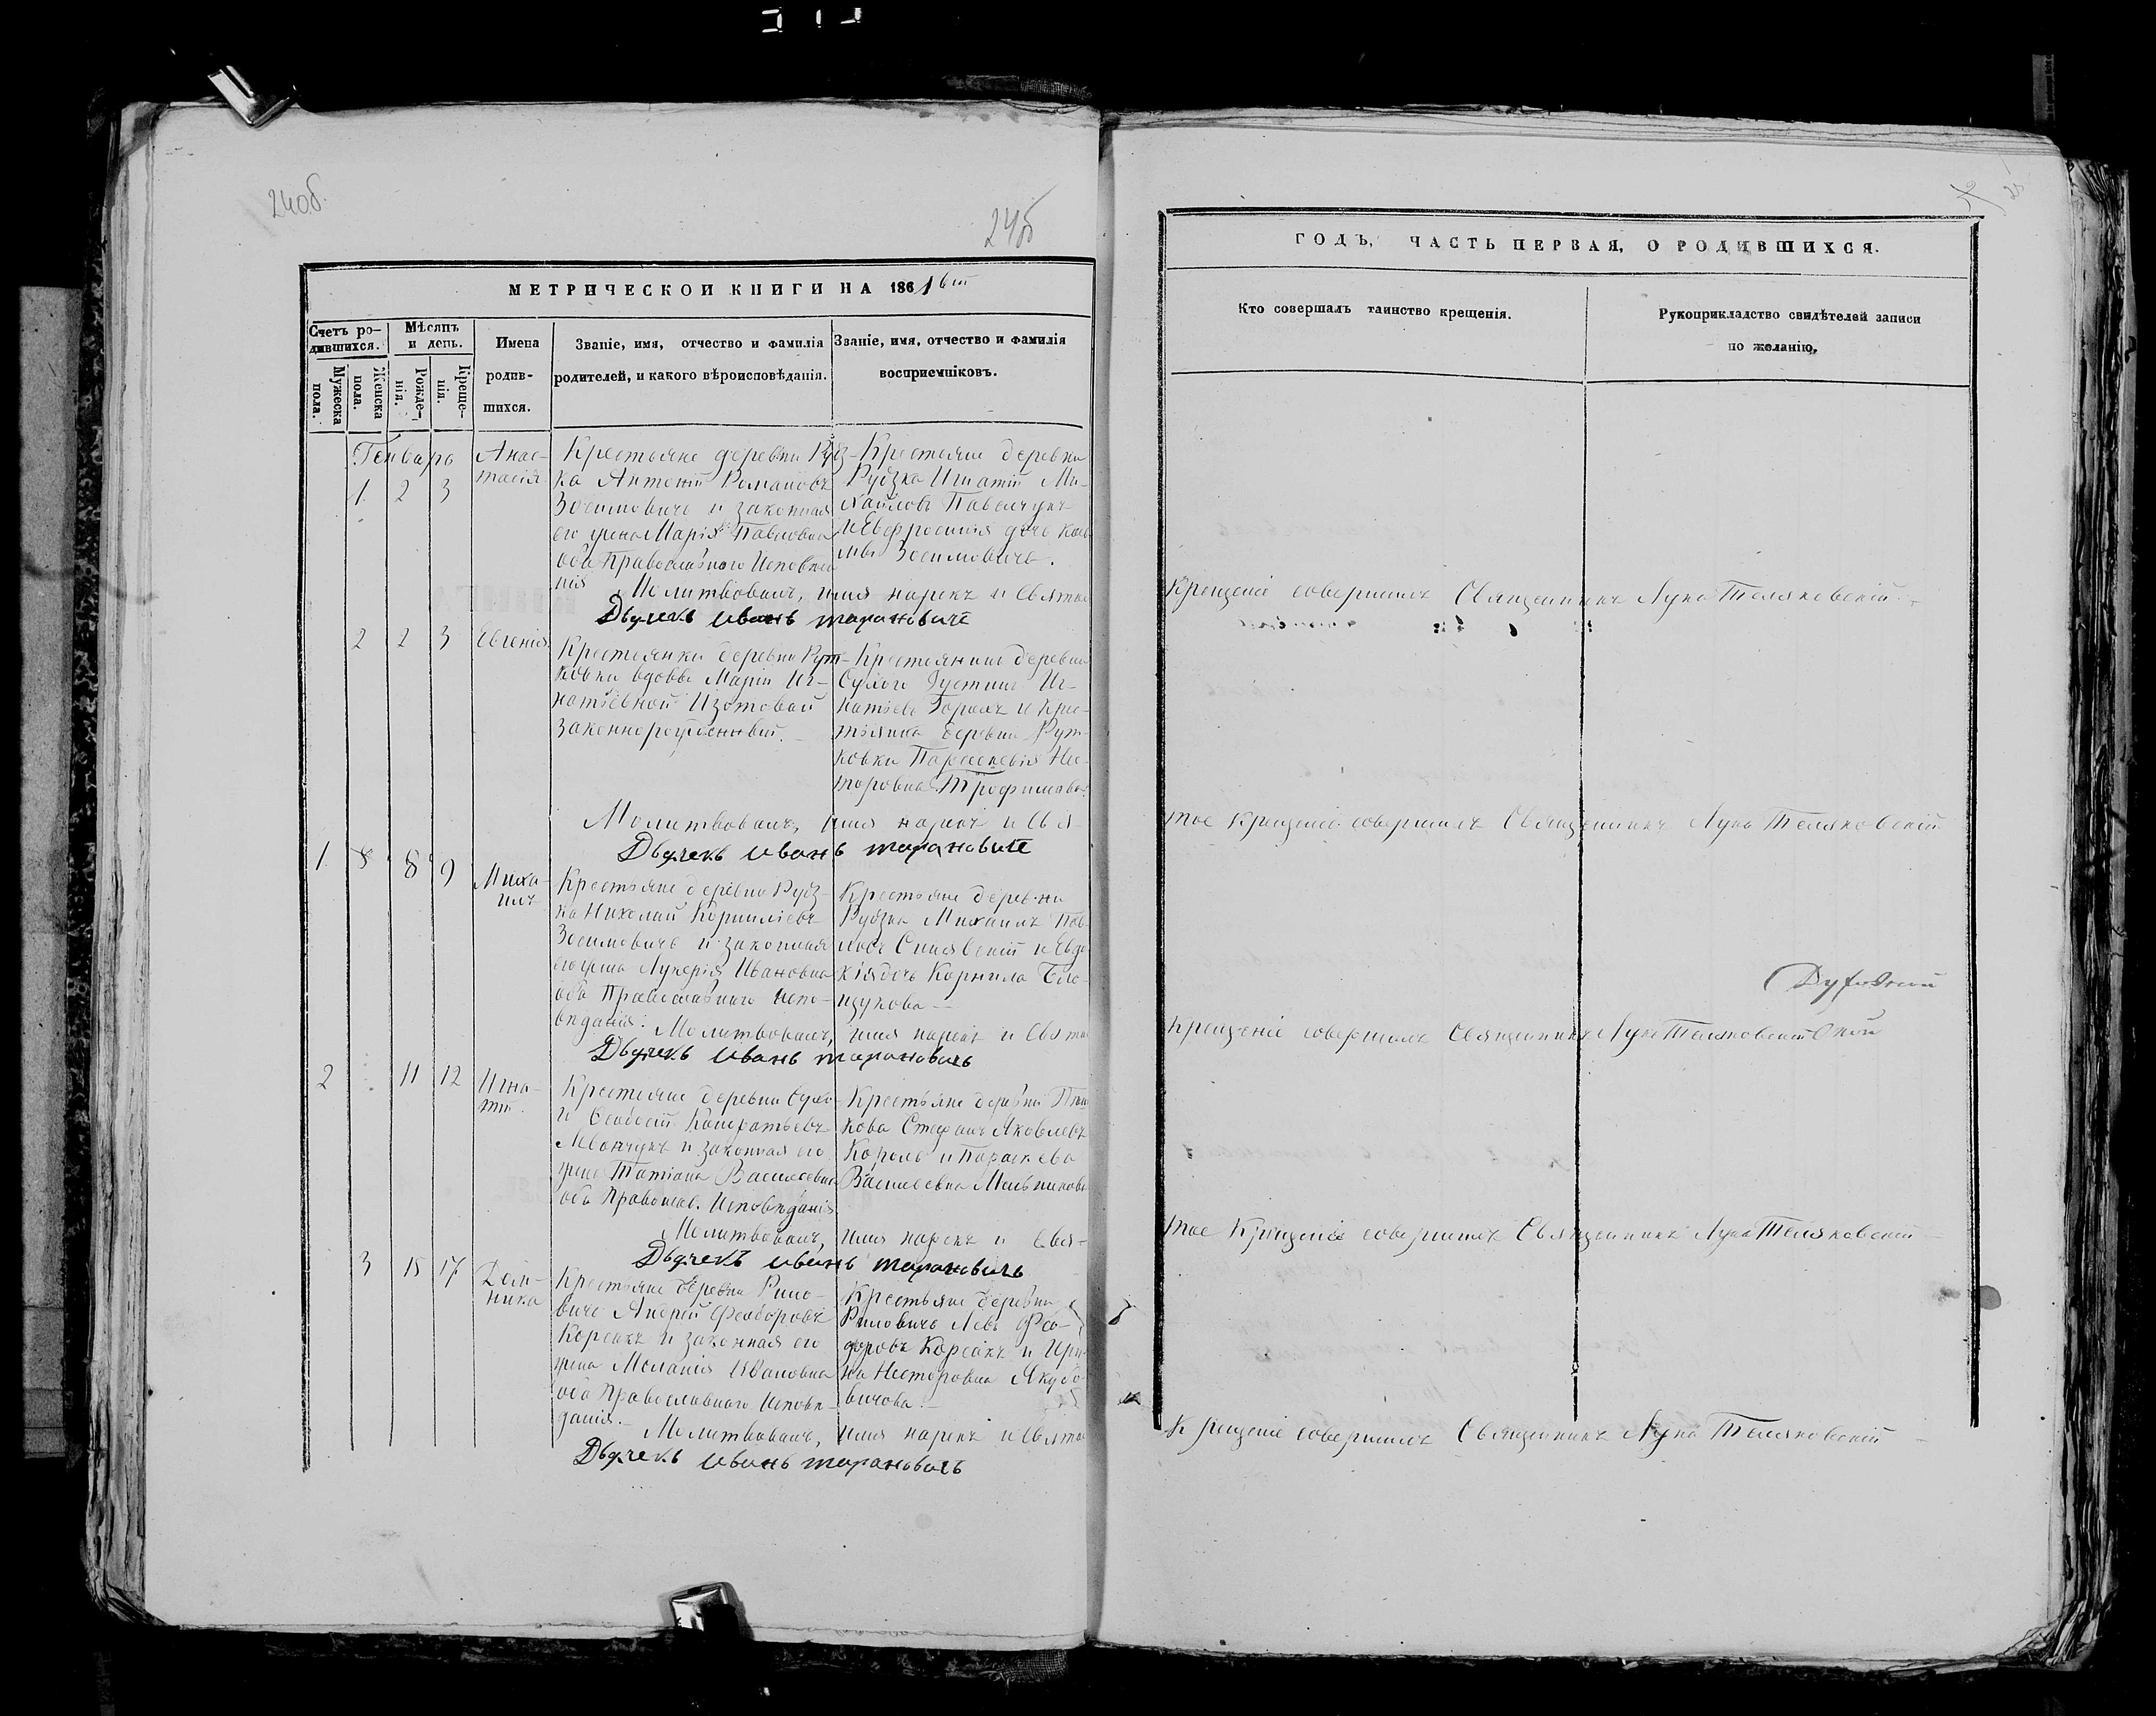 240б.
24об
МЕТРИЧЕСКОЙ КНИГИ НА 1861вый
Счетъ ро-
дившихся.
Мужеска пола.
Женска пола.
Мѣсяцъ и день.
Рожде-нія.
Креще-нія.
Имена
родив-
шихся.
Званіе, имя, отчество и фамилія
родителей, и какого вѣроисповѣданія.
Званіе, имя, отчество и фамилія
воспріемниковъ.
Генварь
1 2 3
Анас-
тасія
Крестьяне деревни Рудз-
ка Антоній Романовъ
Зосимовичъ и законная
его жена Марія Павловна
оба Православнаго Исповѣда
нія
Крестьяне деревни
Рудзка Игнатій Ми-
хайловъ Павлечукъ
и Евфросинія дочь
Зосимовичъ.
Молитвовалъ, имя нарекъ и Свято
Дьячекъ Иванъ Тарановичъ
2 2 3
Евгенія
Крестьянки деревни Рут-
ковки вдовы Маріи Иг-
натьевной Изотовой
законнорожденный.
Крестьянинъ деревни
Сухого Густинъ Иг-
натьевъ Горалъ и Крес-
тьянка деревни Рут-
ковки Параскевія Нес-
торовна Трофимова.
Молитвовалъ, имя нарекъ и Свя-
Дьячекъ Иванъ Тарановичъ
1 8 9
Миха-
илъ
Крестьяне деревни Рудз-
ка Николай Корниліевъ
Зосимовичъ и законная
его жена Лукерія Ивановна
оба Православнаго испо-
вѣданія.
Крестьяне деревни
Рудзка Михаилъ Пав-
ловъ и Евдо
кія дочь Корнила
Молитвовалъ, имя нарекъ и Свято
Дьячекъ Иванъ Тарановичъ
2 11 12
Игна-
тій.
Крестьяне деревни Сухо-
го Кондратьевъ
Левончукъ и законная его
жена Татіана Васильевна
оба Православ. Исповѣданія
Крестьяне деревни
Стефанъ Яковлевъ
Король и Параскева
Васильевна Мельникова
Молитвовалъ, имя нарекъ и Свя-
Дьячекъ Иванъ Тарановичъ
3 15 17
Дом-
ника
Крестьяне деревни Рило-
вичъ Андрей Феодоровъ
Корсакъ и законная его
жена Меланія Ивановна
оба Православнаго Исповѣ-
данія.
Крестьяне деревни
Риловичъ Левъ Фео-
доровъ Корсакъ и Ири-
на Несторовна Якубо-
вичова.
Молитвовалъ, имя нарекъ и Свято
Дьячекъ Иванъ Тарановичъ
25
ГОДЪ, ЧАСТЬ ПЕРВАЯ, О РОДИВШИХСЯ.
Кто совершалъ таинство крещенія.
Рукоприкладство свидѣтелей записи
по желанію.
Крещеніе совершилъ Священникъ Лука Теляковскій
тое Крещеніе совершилъ Священникъ Лука Теляковскій
Крещеніе совершилъ Священникъ Лука Теляковскій
тое Крещеніе совершилъ Священникъ Лука Теляковскій
Крещеніе совершилъ Священникъ Лука Теляковскій